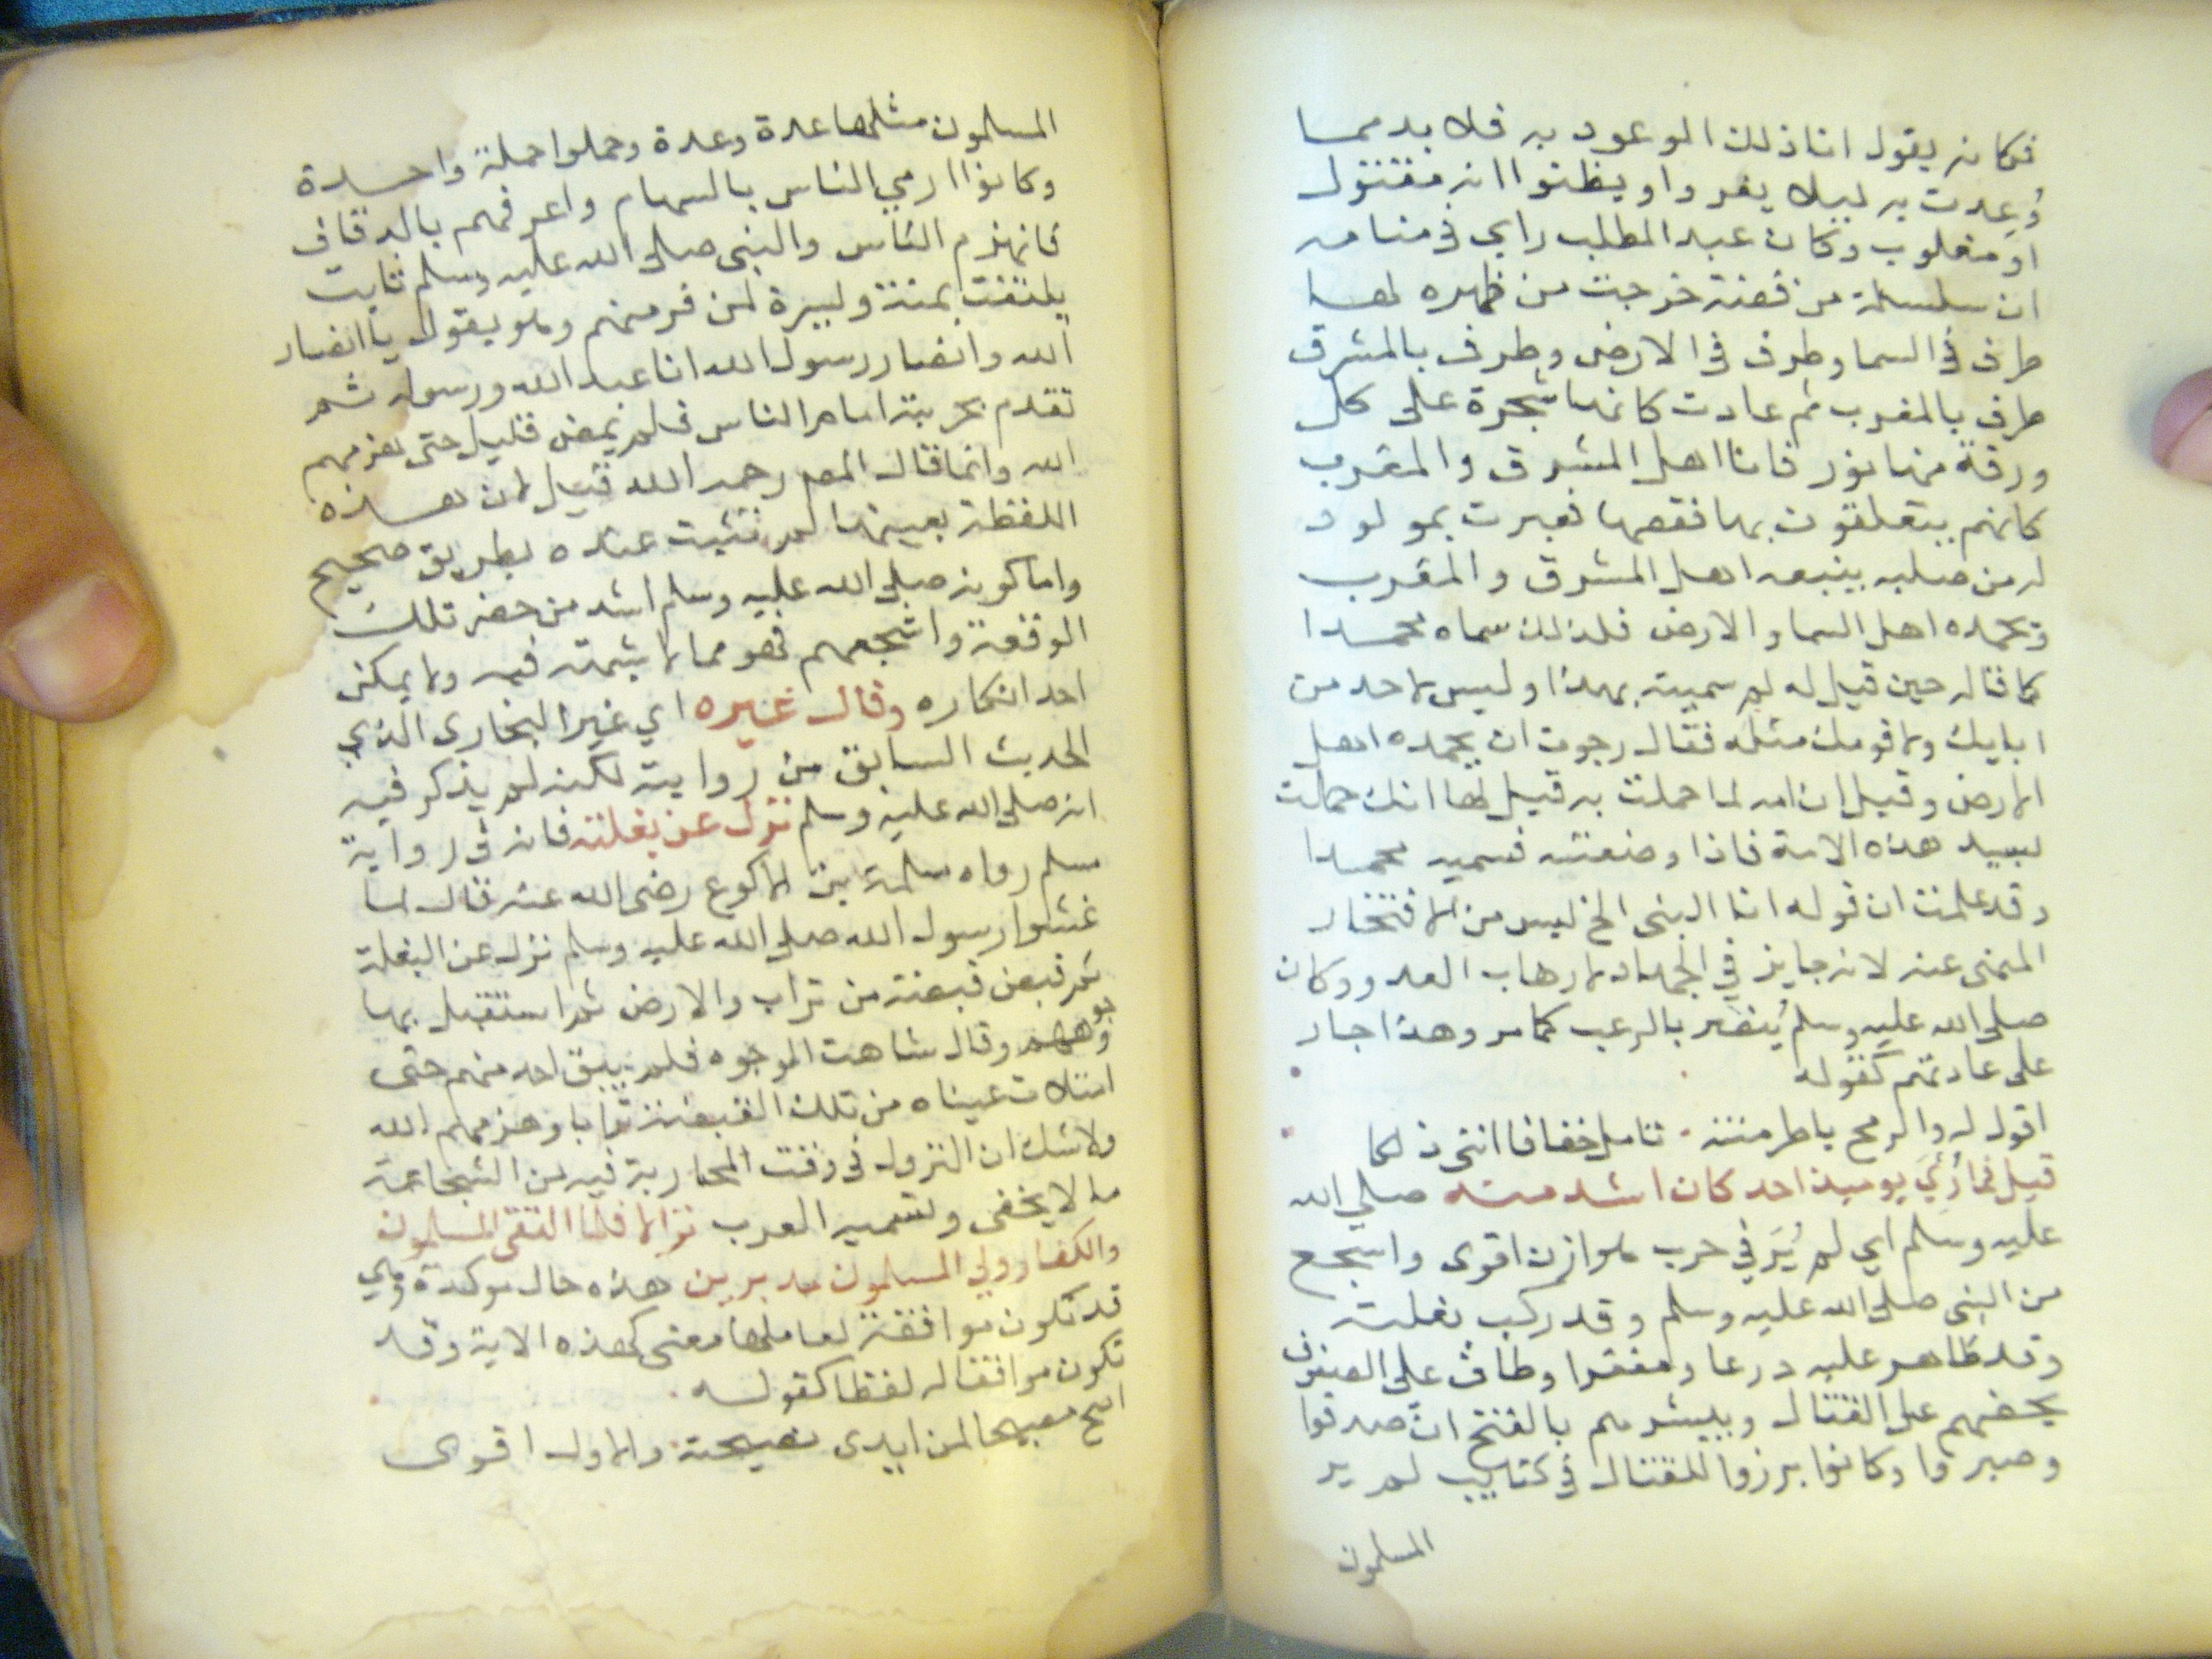 فكانه يقول انا ذلك الموعود به فلا بد مما
وُعِدت به ليلا يفروا ويظنوا انه مقتول
او مغلوب وكان عبد المطلب راي في منامه
ان سلسلة من فضة خرجت من ظهره لها
طرف في السما وطرف في الارض وطرف بالمشرق
طرف بالمغرب ثم عادت كانها شجرة على كل
ورقة منها نور فاذا اهل المشرق والمغرب
كانهم يتعلقون بها فقصها فعبرت بمولود
له من صلبه يتبعه اهل المشرق والمغرب
ويحمده اهل السما والارض فلذلك سماه محمدا
كما قاله حين قيل له لم سميته بهذا وليس لاحد من
ابايك ولا قومك مثله فقال رجوت ان يحمده اهل
الارض وقيل ان امه لما حملت به قيل لها انك حملت
بسيد هذه الامة فاذا وضعتيه فسميه محمدا
وقد علمت ان قوله انا النبي الخ ليس من الافتخار
المنهى عنه لانه جايز في الجهاد لارهاب العدو وكان
صلى الله عليه وسلم يُنصَر بالرعب كما مر وهذا جار
على عادتهم كقوله
اقول له والرمح ياطر متنه . تامل خفافا انني ذلكا
قيل فما رُئيَ يوميذ احد كان اشد منه صلى الله
عليه وسلم اي لم يُرَ في حرب هوازن اقوى واشجع
من النبي صلى الله عليه وسلم وقد ركب بغلته
وقد ظاهر عليه درعا ومغفرا وطاف على الصفوف
يحضهم على القتال ويبشرهم بالفتح ان صدقوا
وصبروا وكانوا برزوا للقتال في كتايب لم ير
المسلمون
المسلمون مثلها عدة وعدة وحملوا حملة واحدة
وكانوا ارمي الناس بالسهام واعرفهم بالدقاف
فانهزم الناس والنبى صلى الله عليه وسلم ثابت
يلتفت يمنة ويسرة لمن فر منهم وهو يقول يا انصار
الله وانصار رسول الله انا عبد الله ورسوله ثم
تقدم بحربته امام الناس فلم يمض قليل حتى هزمهم
الله وانما قال المص رحمه الله قيل لان هذه
اللفظة بعينها لم تثبت عنده بطريق صحيح
واما كونه صلى الله عليه وسلم اشد من حضر تلك
الوقعة واشجعهم فهو مما لا يشك فيه ولا يمكن
احد انكاره وقال غيره اي غير البخارى الذي
الحديث السابق من روايته لكنه لم يذكر فيه
انه صلى الله عليه وسلم نزل عن بغلته فانه في رواية
مسلم رواه سلمة بن الاكوع رضى الله عنه قال لما
غشوا رسول الله صلى الله عليه وسلم نزل عن البغلة
ثم قبض قبضة من تراب والارض ثم استقبل بها
وجوههم وقال شاهت الوجوه فلم يبق احد منهم حتى
امتلات عيناه من تلك القبضة ترابا وهزمهم الله
ولا شك ان النزول في وقت المحاربة فيه من الشجاعة
ما لا يخفى وتسميه العرب نزالا فلما التقى المسلمون
والكفار ولي المسلمون مدبرين هذه حال موكدة وهي
قد تكون موافقة لعاملها معنى كهذه الاية وقد
تكون موافقا له لفظا كقوله .
اصخ مصيحا لمن ابدى نصيحته والاول اقوى